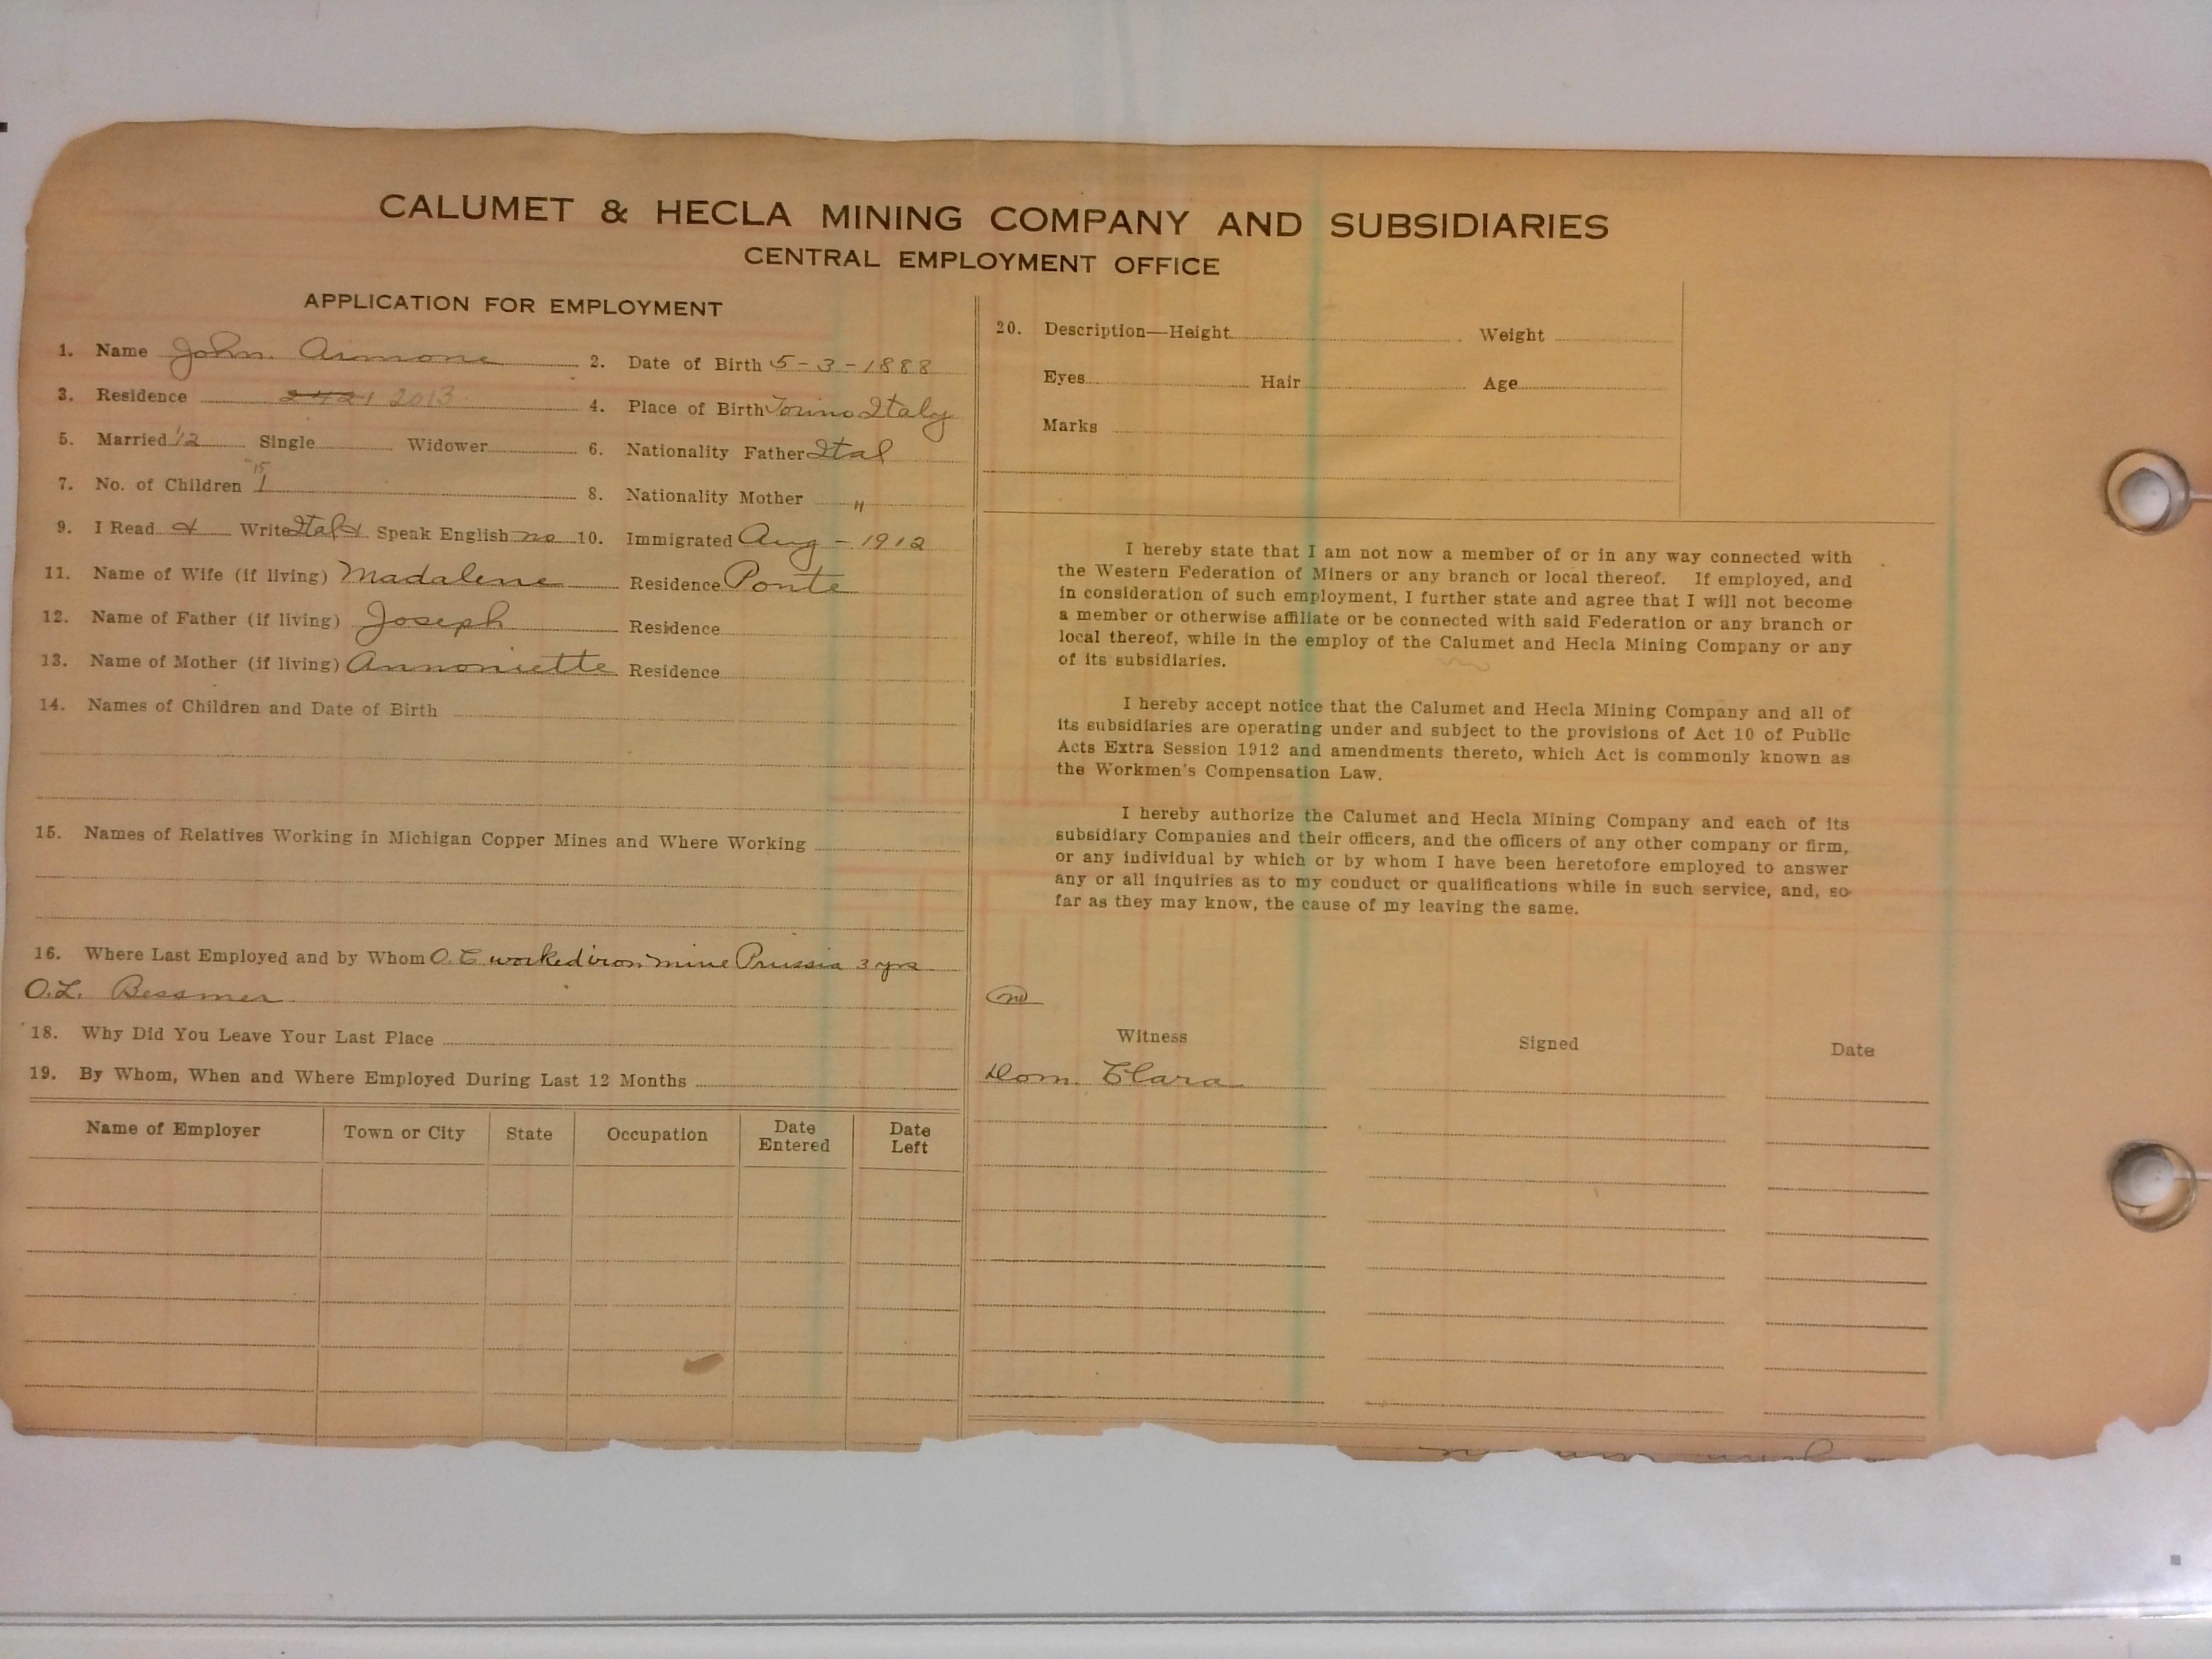 CALUMET & HECLA MINING COMPANY AND SUBSIDIARIES
CENTRAL EMPLOYMENT OFFICE
APPLICATION FOR EMPLOYMENT
1. Name John. Aimone 2. Date of Birth 5-3-1888
3. Residence 2421 2013 4. Place of Birth Torino Italy
5. Married '12 Single Widower 6. Nationality Father Ital
7. No. of Children 1 15 8. Nationality Mother "
9. I Read & Write Ital & Speak English no 10. Immigrated Aug - 1912
11. Name of Wife (if living) Madalene Residence Ponte
12. Name of Father (if living) Joseph Residence
13. Name of Mother (if living) Annoniette Residence
14. Names of Children and Date of Birth
15. Names of Relatives Working in Michigan Copper Mines and Where Working
16. Where Last Employed and by Whom O.C. worked iron mine Prussia 3 yrs
O.L. Bessmer
18. Why Did You Leave Your Last Place
19. By Whom, When and Where Employed During Last 12 Months
Name of Employer Town or City State Occupation Date Entered Date Left
20. Description—Height Weight
Eyes Hair Age
Marks
I hereby state that I am not now a member of or in any way connected with
the Western Federation of Miners or any branch or local thereof. If employed, and
in consideration of such employment, I further state and agree that I will not become
a member or otherwise affiliate or be connected with said Federation or any branch or
local thereof, while in the employ of the Calumet and Hecla Mining Company or any
of its subsidiaries.
I hereby accept notice that the Calumet and Hecla Mining Company and all of
its subsidiaries are operating under and subject to the provisions of Act 10 of Public
Acts Extra Session 1912 and amendments thereto, which Act is commonly known as
the Workmen's Compensation Law.
I hereby authorize the Calumet and Hecla Mining Company and each of its
subsidiary Companies and their officers, and the officers of any other company or firm,
or any individual by which or by whom I have been heretofore employed to answer
any or all inquiries as to my conduct or qualifications while in such service, and, so
far as they may know, the cause of my leaving the same.
Witness Signed Date
Dom. Clara